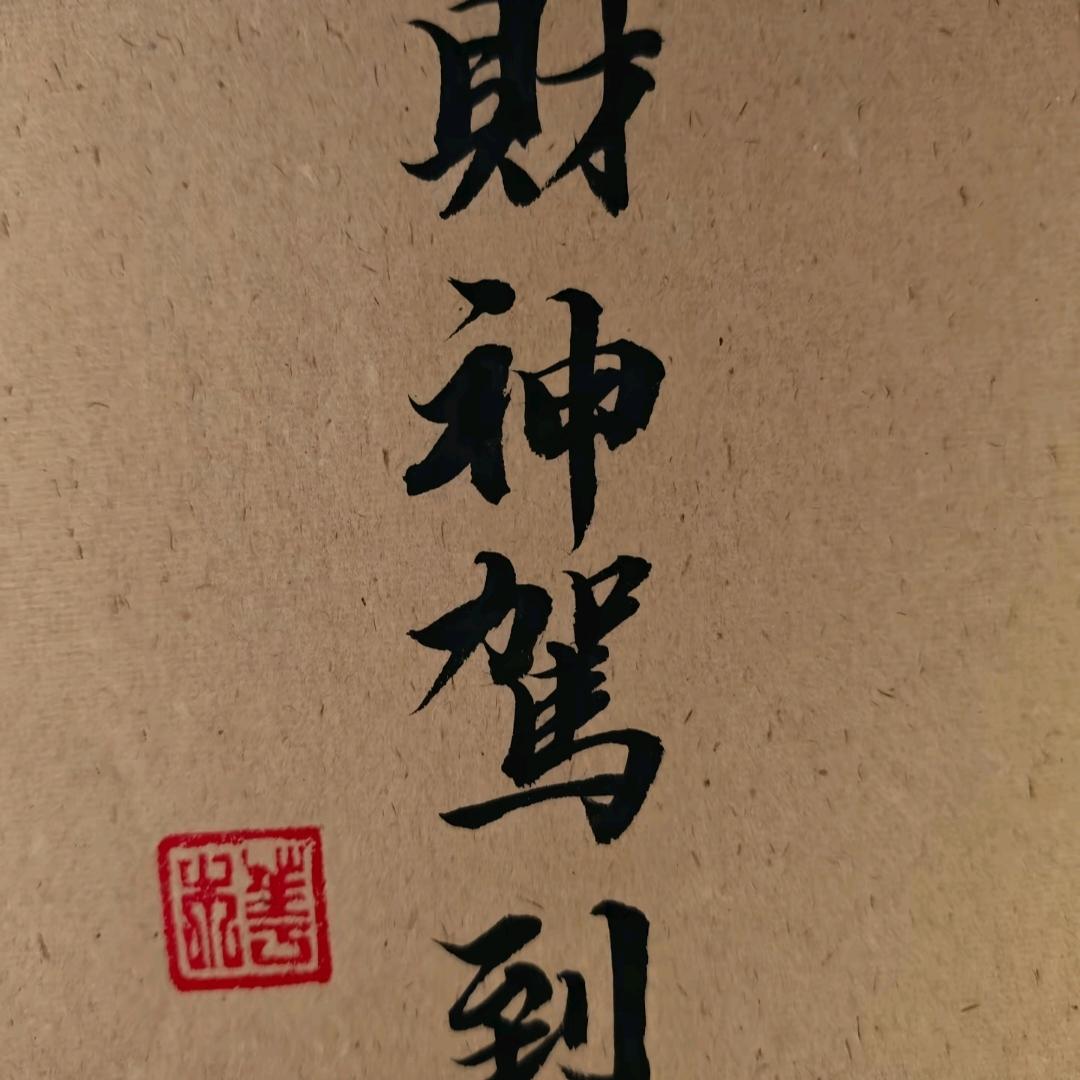 財神駕到